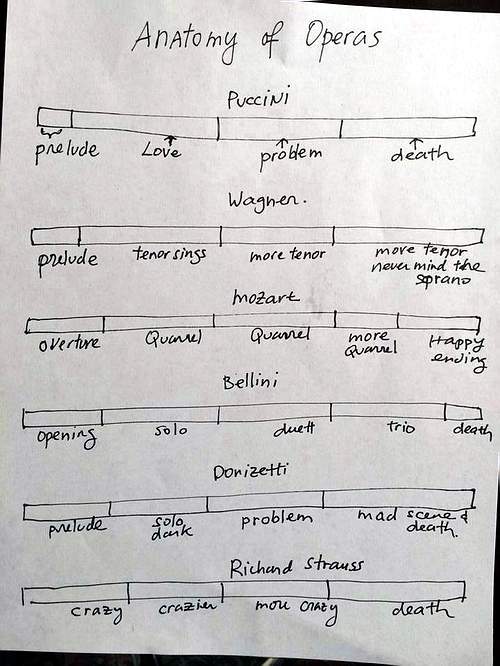 Anatomy of Operas
Puccini
prelude Love problem death
Wagner.
prelude tenor sings more tenor more tenor
never mind the
soprano
mozart
overture Quarrel Quarrel more Happy
Quarrel ending
Bellini
opening solo duett trio death
Donizetti
prelude solo problem mad scene &
dark death.
Richard Strauss
crazy crazier more crazy death